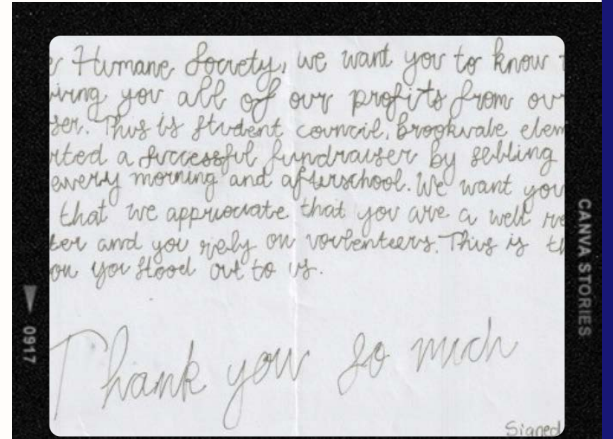 r Humane Society, we want you to know t
iving you all of our profits from our
ser. This is student council, brookvale elem
rted a successful fundraiser by selling
every morning and afterschool. We want you
that we appriociate that you are a well re
ter and you rely on voulenteers. This is th
on you stood out to us.
Thank you so much
Signed
CANVA STORIES
0917